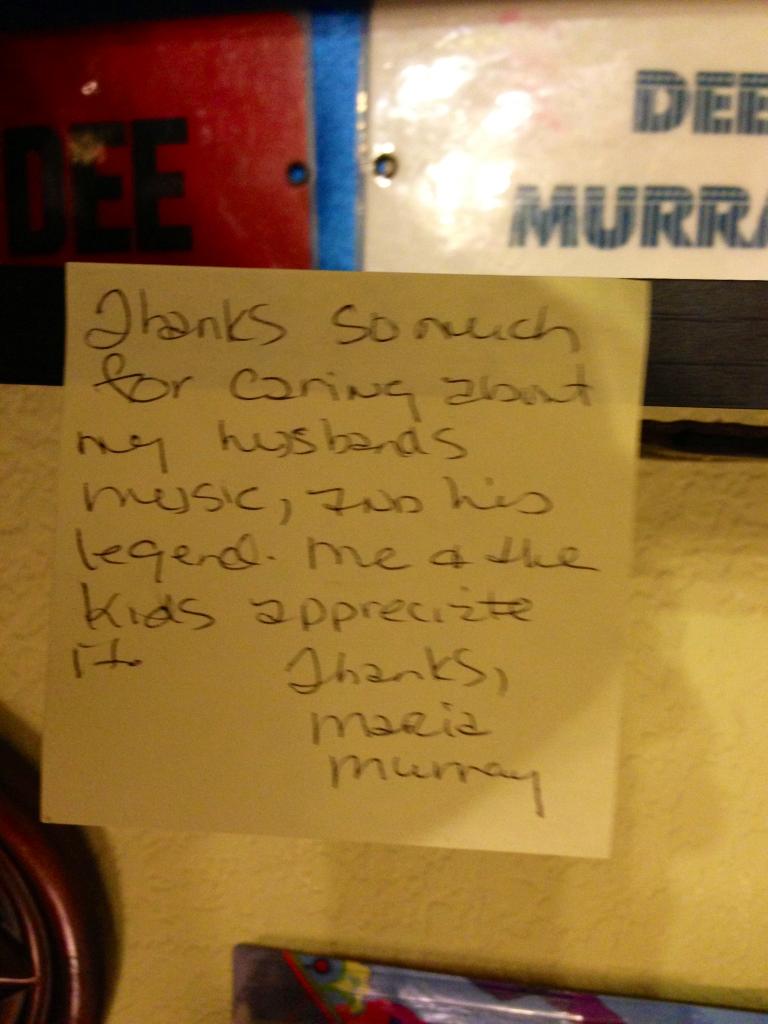 DEE
DEE
MURRA
Thanks so much
for caring about
my husbands
music, and his
legend. me & the
kids appreciate
it.
Thanks,
maria
murray